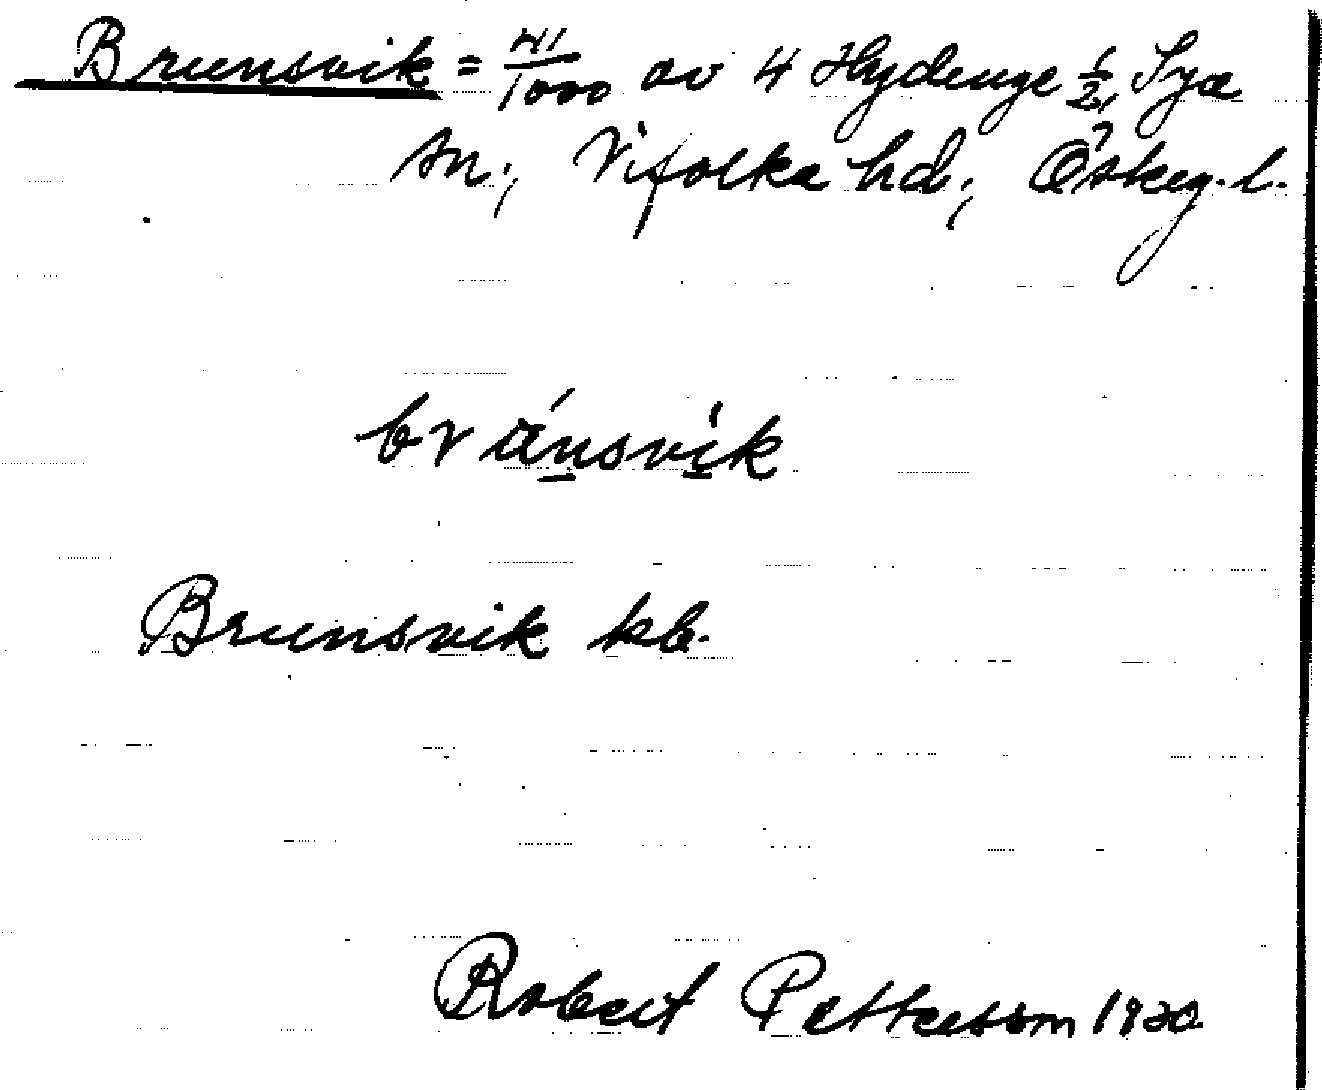 Brunsvik = 41/1000 av 4 Hydinge 1/2, Sya
sn., Vifolka hd., Österg. l.
bránsvík
Brunsvik kb.
Robert Petterson 1930